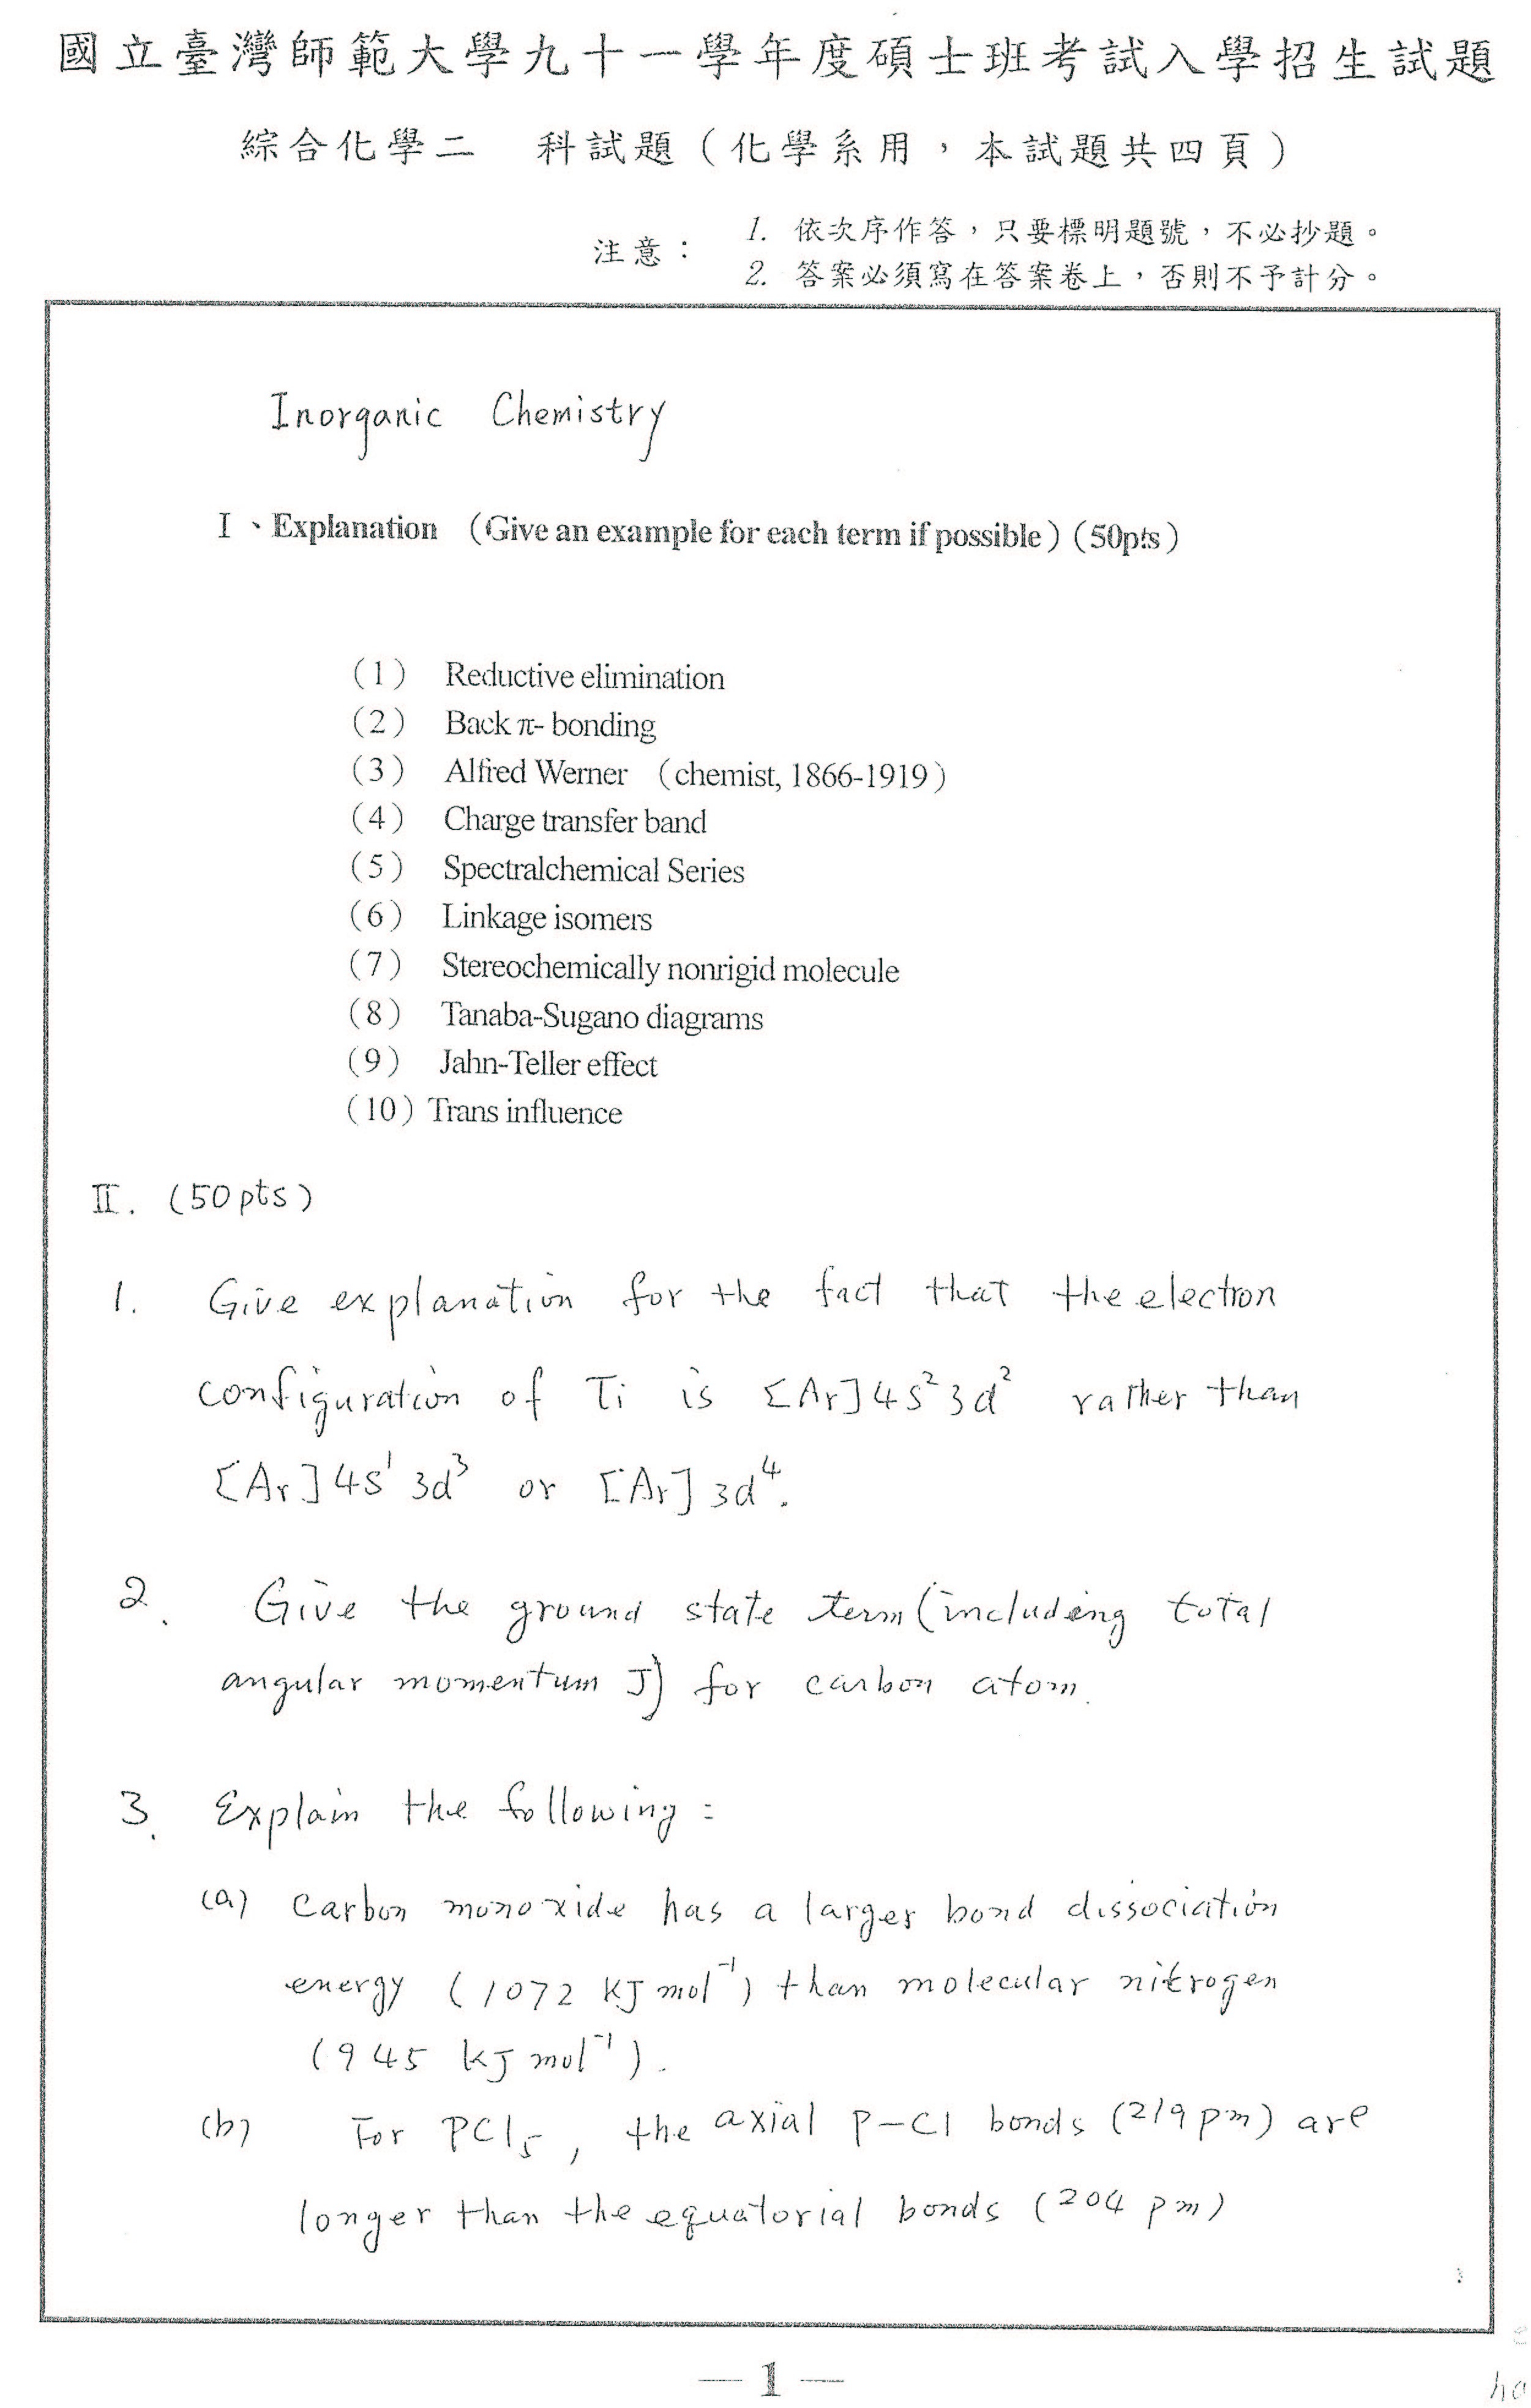 國立臺灣師範大學九十一學年度碩士班考試入學招生試題
綜合化學二 科試題(化學系用,本試題共四頁)
注意:
1. 依次序作答,只要標明題號,不必抄題。
2. 答案必須寫在答案卷上,否則不予計分。
Inorganic Chemistry
I、Explanation (Give an example for each term if possible)(50pts)
(1) Reductive elimination
(2) Back π- bonding
(3) Alfred Werner (chemist, 1866-1919)
(4) Charge transfer band
(5) Spectralchemical Series
(6) Linkage isomers
(7) Stereochemically nonrigid molecule
(8) Tanaba-Sugano diagrams
(9) Jahn-Teller effect
(10) Trans influence
II. (50pts)
1. Give explanation for the fact that the electron
configuration of Ti is [Ar]4s²3d² rather than
[Ar]4s¹3d³ or [Ar]3d⁴.
2. Give the ground state term (including total
angular momentum J) for carbon atom.
3. Explain the following:
(a) Carbon monoxide has a larger bond dissociation
energy (1072 KJ mol⁻¹) than molecular nitrogen
(945 kJ mol⁻¹).
(b) For PCl₅, the axial P-Cl bonds (219 pm) are
longer than the equatorial bonds (204 pm)
— 1 —